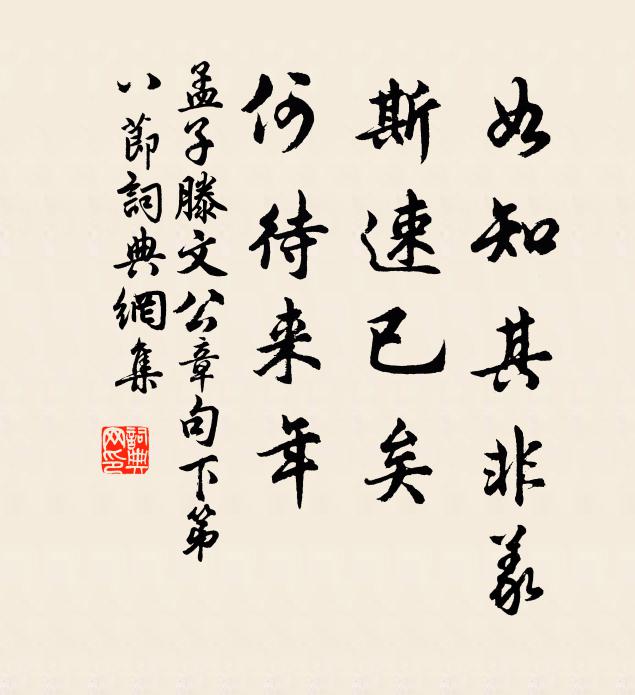 如知其非義
斯速已矣
何待来年
孟子滕文公章句下第
八節詞典網集
詞典
网印